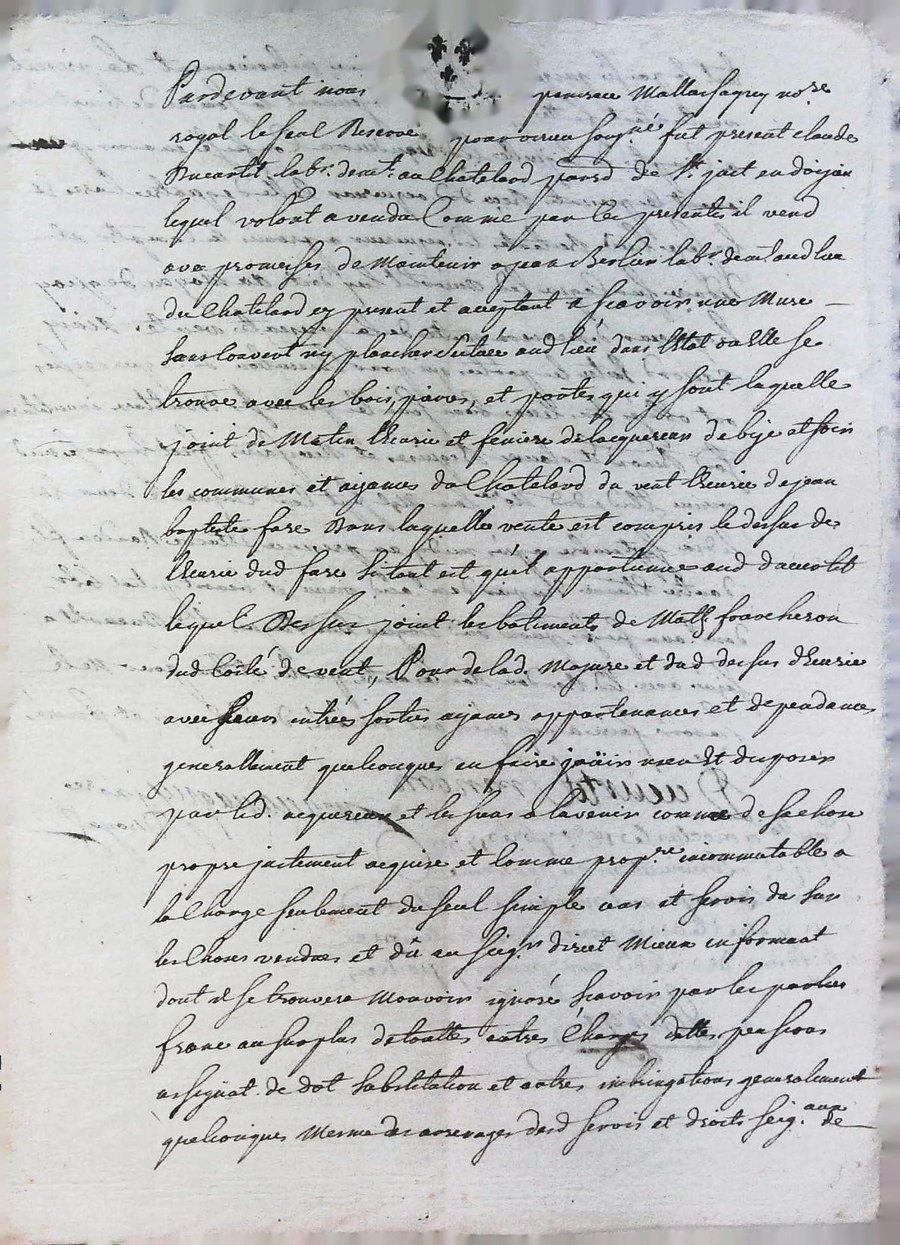 Pardevant nous Mallassagny no.re
royal le seul Reservé pour vieux soug.né fut present claude
Ducurtil lab.r demt. au Chatelard parsse de St. just en doizieu
lequel volont a vendu Comme par les presentes il vend
avec promesses de Maintenir a jean Berlier lab.r demt. aud lieu
du Chatelard cy present et aceptant a scavoir une Mure
sans Couvert ny plancher située aud lieu dans l'Etat ou Elle se
trouve avec les bois, pierres, et portes qui y sont laquelle
joint de Matin Ecurie et feniere de lacquereur de bize et soir
les communes et aizances du Chatelard du vent Ecurie de jean
baptiste fare Dans laquelle vente est compris le dessus de
Ecurie dud fare si tant est qu'il appartienne aud ducurtil
lequel Dessus joint les batiments de Math. francheron
dud Coté de vent, Pour de lad. Mazure et dud dessus d'Ecurie
avec Leurs entrées sorties aizances appartenances et dependances
generallement quelconques en faire jouir user Et disposer
par led. acquereur et les siens a lavenir comme de sa chose
propre justement acquise et Comme prop.re incommutable a
la Charge seulement du seul simple cens et servis du sur
les Choses vendues et dû au seig.r direct Mieux informant
dont il se trouvera Mouvoir ignoré scavoir par les parties
franc au surplus de touttes autres Charges dettes pensions
assignat de dot substitution et autres imbringations generalement
quelconques Mesme des arrerages desd servis et droits seig.aux de